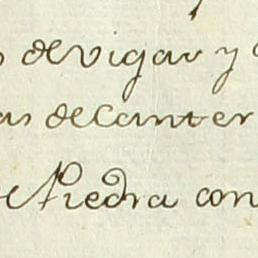 s de vigas y
as de canter
de Piedra con